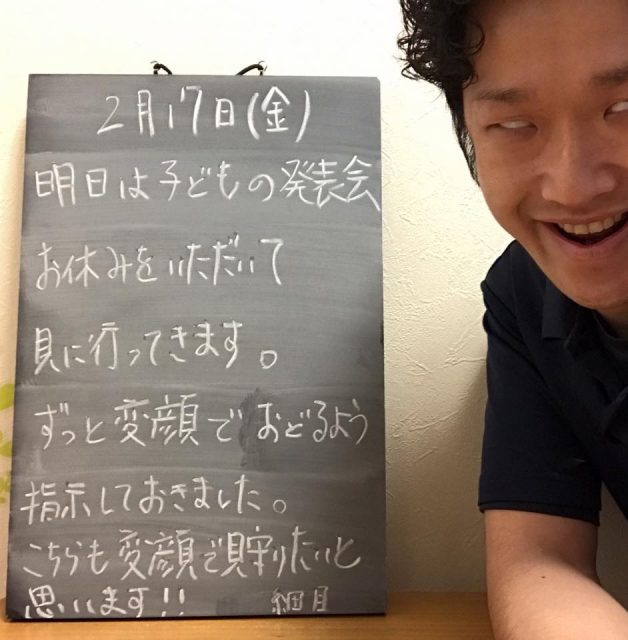 2月17日(金)
明日は子どもの発表会
お休みをいただいて
見に行ってきます。
ずっと変顔でおどるよう
指示しておきました。
こちらも変顔で見守りたいと
思います!!　細目